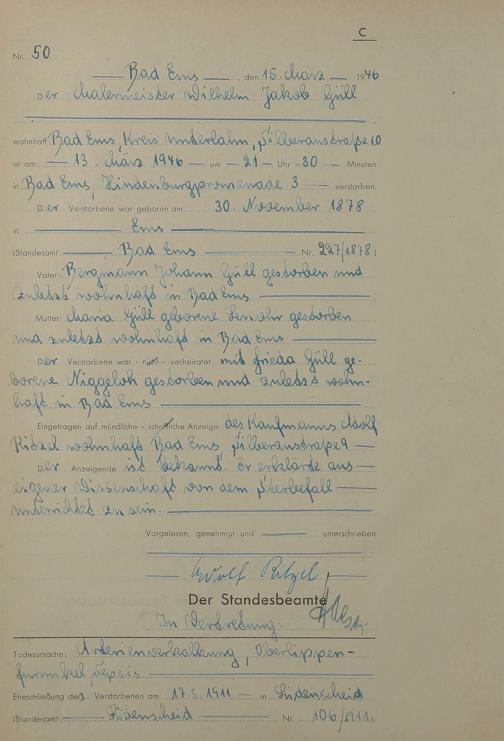 C
Nr. 50
Bad Ems, den 15. März 1946
Der Malermeister Wilhelm Jakob Güll
wohnhaft Bad Ems, Kreis Unterlahn, Silberaustraße 10
ist am 13. März 1946 um 21 Uhr 30 Minuten
in Bad Ems, Hindenburgpromenade 3 verstorben.
Der Verstorbene war geboren am 30. November 1878
in Ems
(Standesamt Bad Ems Nr. 227/1878)
Vater: Bergmann Johann Güll gestorben und
zuletzt wohnhaft in Bad Ems
Mutter: Maria Güll geborene gestorben
und zuletzt wohnhaft in Bad Ems
Der Verstorbene war - nicht - verheiratet mit Frieda Güll ge-
borene Niggeloh gestorben und zuletzt wohn-
haft in Bad Ems
Eingetragen auf mündliche - schriftliche Anzeige des Kaufmanns Adolf
Ritzel wohnhaft Bad Ems, Silberaustraße 9
Der Anzeigende ist bekannt. Er erklärte aus
eigener Wissenschaft von dem Sterbefall
unterrichtet zu sein.
Vorgelesen, genehmigt und unterschrieben
Adolf Ritzel
Der Standesbeamte
In Vertretung:
Todesursache: Arterienverkalkung, Oberlippen-
furunkel Sepsis
Eheschließung des Verstorbenen am 17.5.1911 in Lüdenscheid
(Standesamt Lüdenscheid Nr. 106/1911)